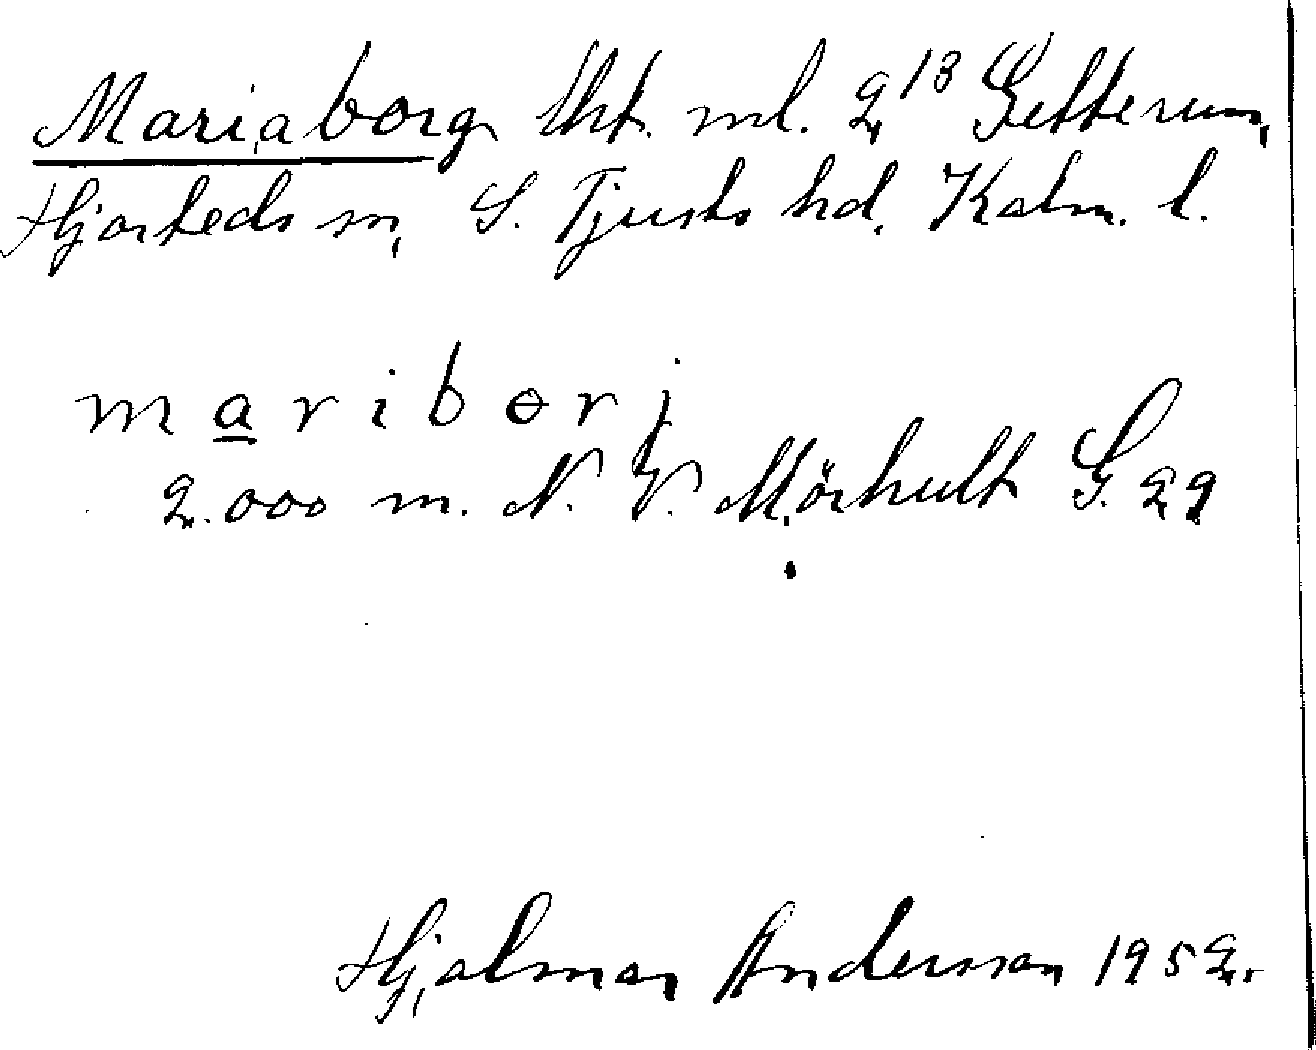 Mariaborg lht. ml. 2¹³ Getterum,
Hjorteds sn, S. Tjusts hd. Kalm. l.
maribɵrj
2.000 m. N. V. Mörhult G. 29
Hjalmar Andersson 1952.